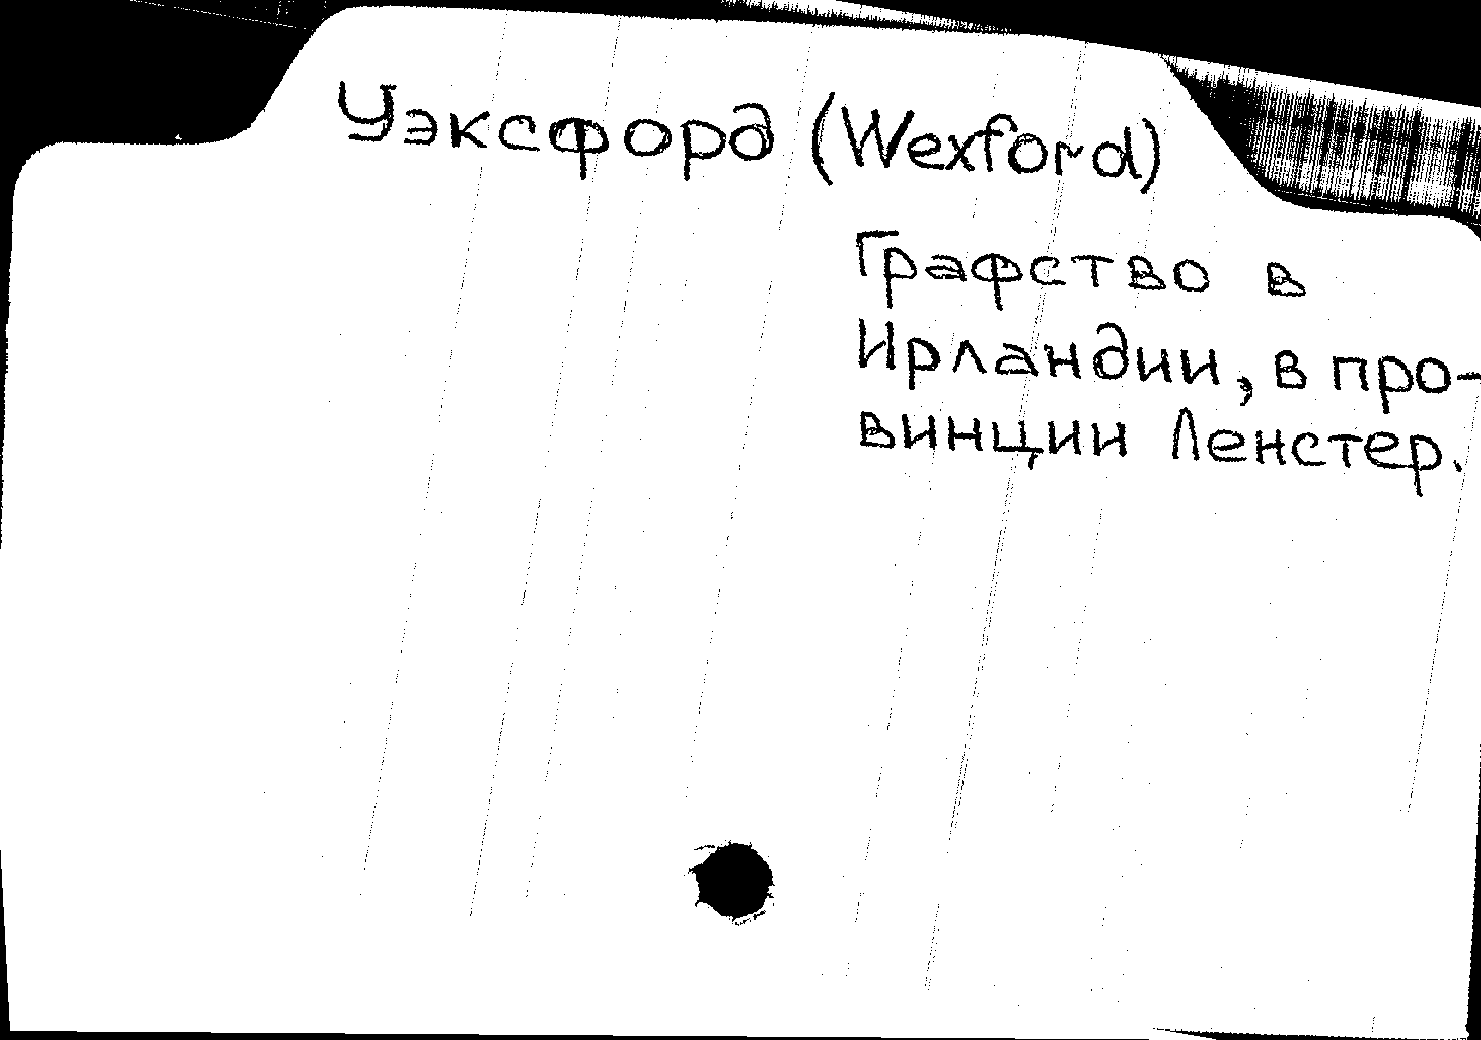 Уэксфорд (Wexford)
Графство в
Ирландии, в про-
винции Ленстер.